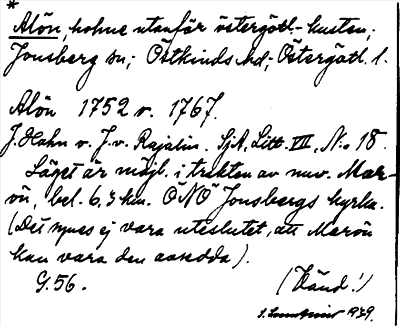 *
Alön, holme utanför östergötl.-kusten;
Jonsberg sn; Östkinds hd; Östergötl. l.
Alön 1752 o. 1767.
J. Hahn o. J. v. Rajalin. SjA, Litt. VII, No 18.
Läget är möjl. i trakten av nuv. Mar-
ön, bel. 6,3 km. ONO Jonsbergs kyrka.
(Det synes ej vara uteslutet, att Marön
kan vara den avsedda).
G. 56. (Vänd!)
1939.